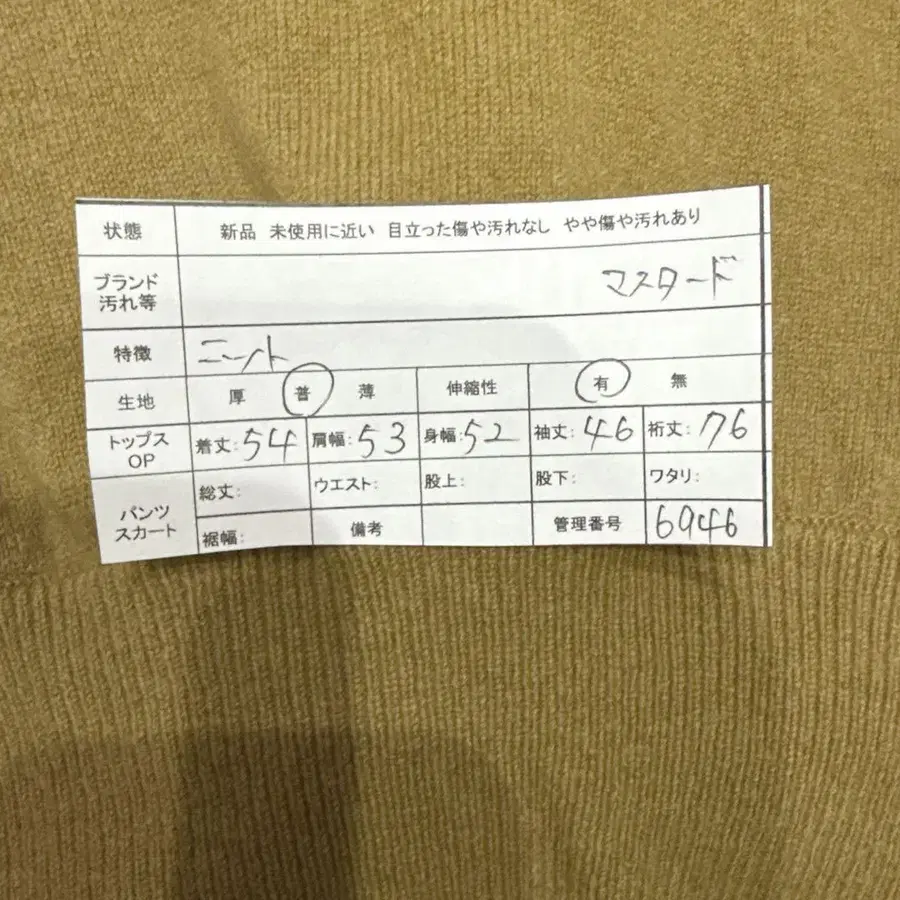 状態 新品 未使用に近い 目立った傷や汚れなし やや傷や汚れあり
ブランド
汚れ等 マスタード
特徴 ニット
生地 厚 普 薄 伸縮性 有 無
トップス
OP 着丈:54 肩幅:53 身幅:52 袖丈:46 裄丈:76
パンツ
スカート 総丈: ウエスト: 股上: 股下: ワタリ:
裾幅: 備考 管理番号 6946